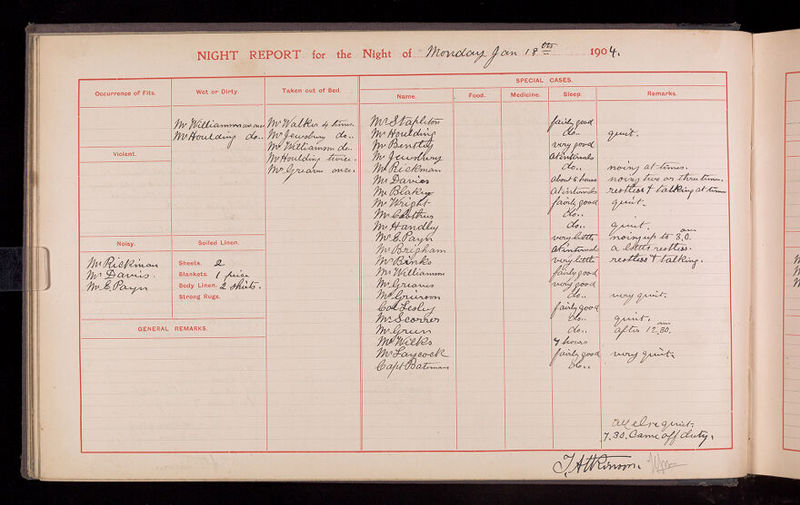 NIGHT REPORT for the Night of Monday Jan 18th 1904.
SPECIAL CASES.
Occurrence of Fits.
Wet or Dirty.
Taken out of Bed.
Name.
Food.
Medicine.
Sleep.
Remarks.
Mr Williamson
Mr Houlding do..
Violent.
Mr Walker 4 times.
Mr Jewsbury do..
Mr Williamson do..
Mr Houlding twice.
Mr Greaves once.
Noisy.
Mr Rickman
Mr Davies.
Mr E. Payn
Soiled Linen.
Sheets. 2
Blankets. 1
Body Linen. 2 shirts.
Strong Rugs.
GENERAL REMARKS.
Mr Stapleton fairly good
Mr Houlding do.. quiet.
Mr Bentley very good
Mr Jewsbury at intervals
Mr Rickman do.. noisy at times.
Mr Davies about 5 hours noisy two or three times.
Mr Blakey at intervals restless & talking at times
Mr Wright fairly good quiet.
Mr do..
Mr Handley do.. quiet.
Mr E. Payn very little noisy up to 3,0. am
Mr Brigham at intervals a little restless.
Mr Binks very little restless & talking.
Mr Williamson fairly good
Mr Greaves very good
Mr Grierson do.. very quiet.
Col Lesley fairly good
Mr Scorrer do.. quiet.
Mr Green do.. after 12,30. am
Mr Wilks 7 hours
Mr Laycock fairly good very quiet.
Capt Bateman do..
all else quiet.
7.30. Came off duty.
J Atkinson.